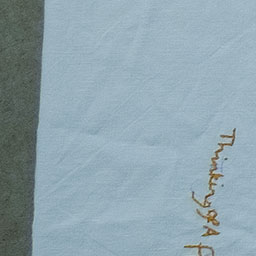 Thinking of A